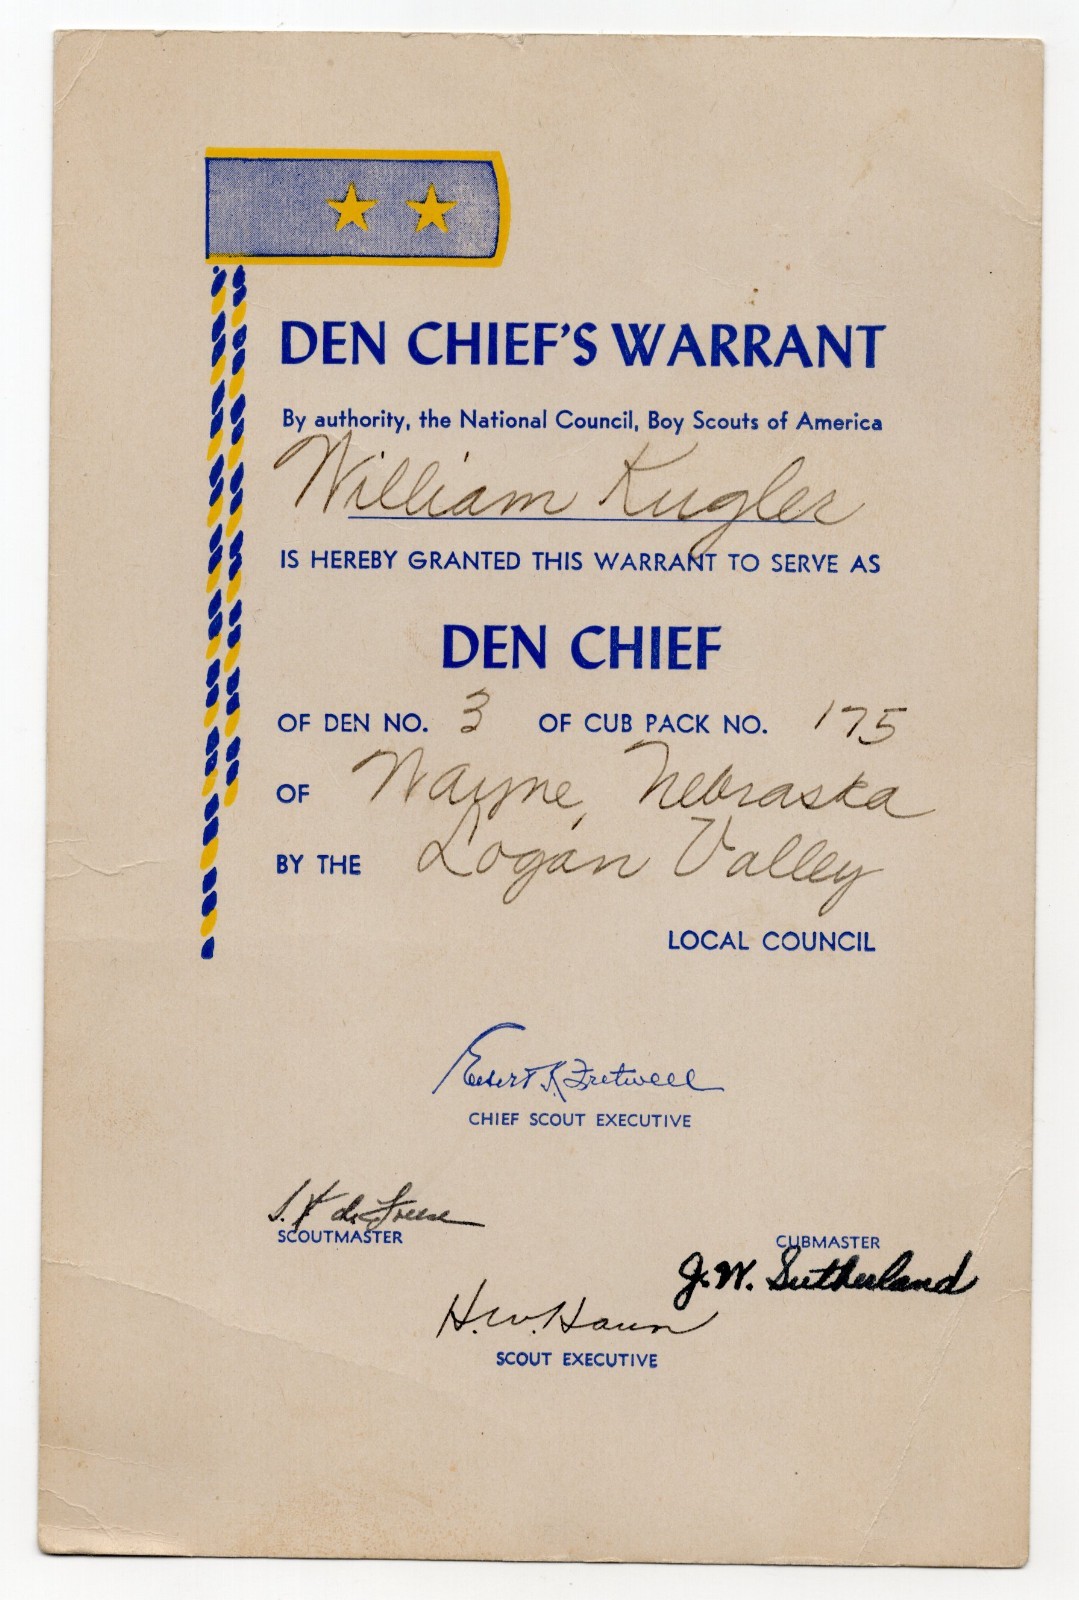 DEN CHIEF'S WARRANT
By authority, the National Council, Boy Scouts of America
William Kugler
IS HEREBY GRANTED THIS WARRANT TO SERVE AS
DEN CHIEF
OF DEN NO. 3 OF CUB PACK NO. 175
OF Wayne, Nebraska
BY THE Logan Valley
LOCAL COUNCIL
Elbert K Fretwell
CHIEF SCOUT EXECUTIVE
S. K de Freese
SCOUTMASTER
CUBMASTER
J. W. Sutherland
H. W. Haun
SCOUT EXECUTIVE